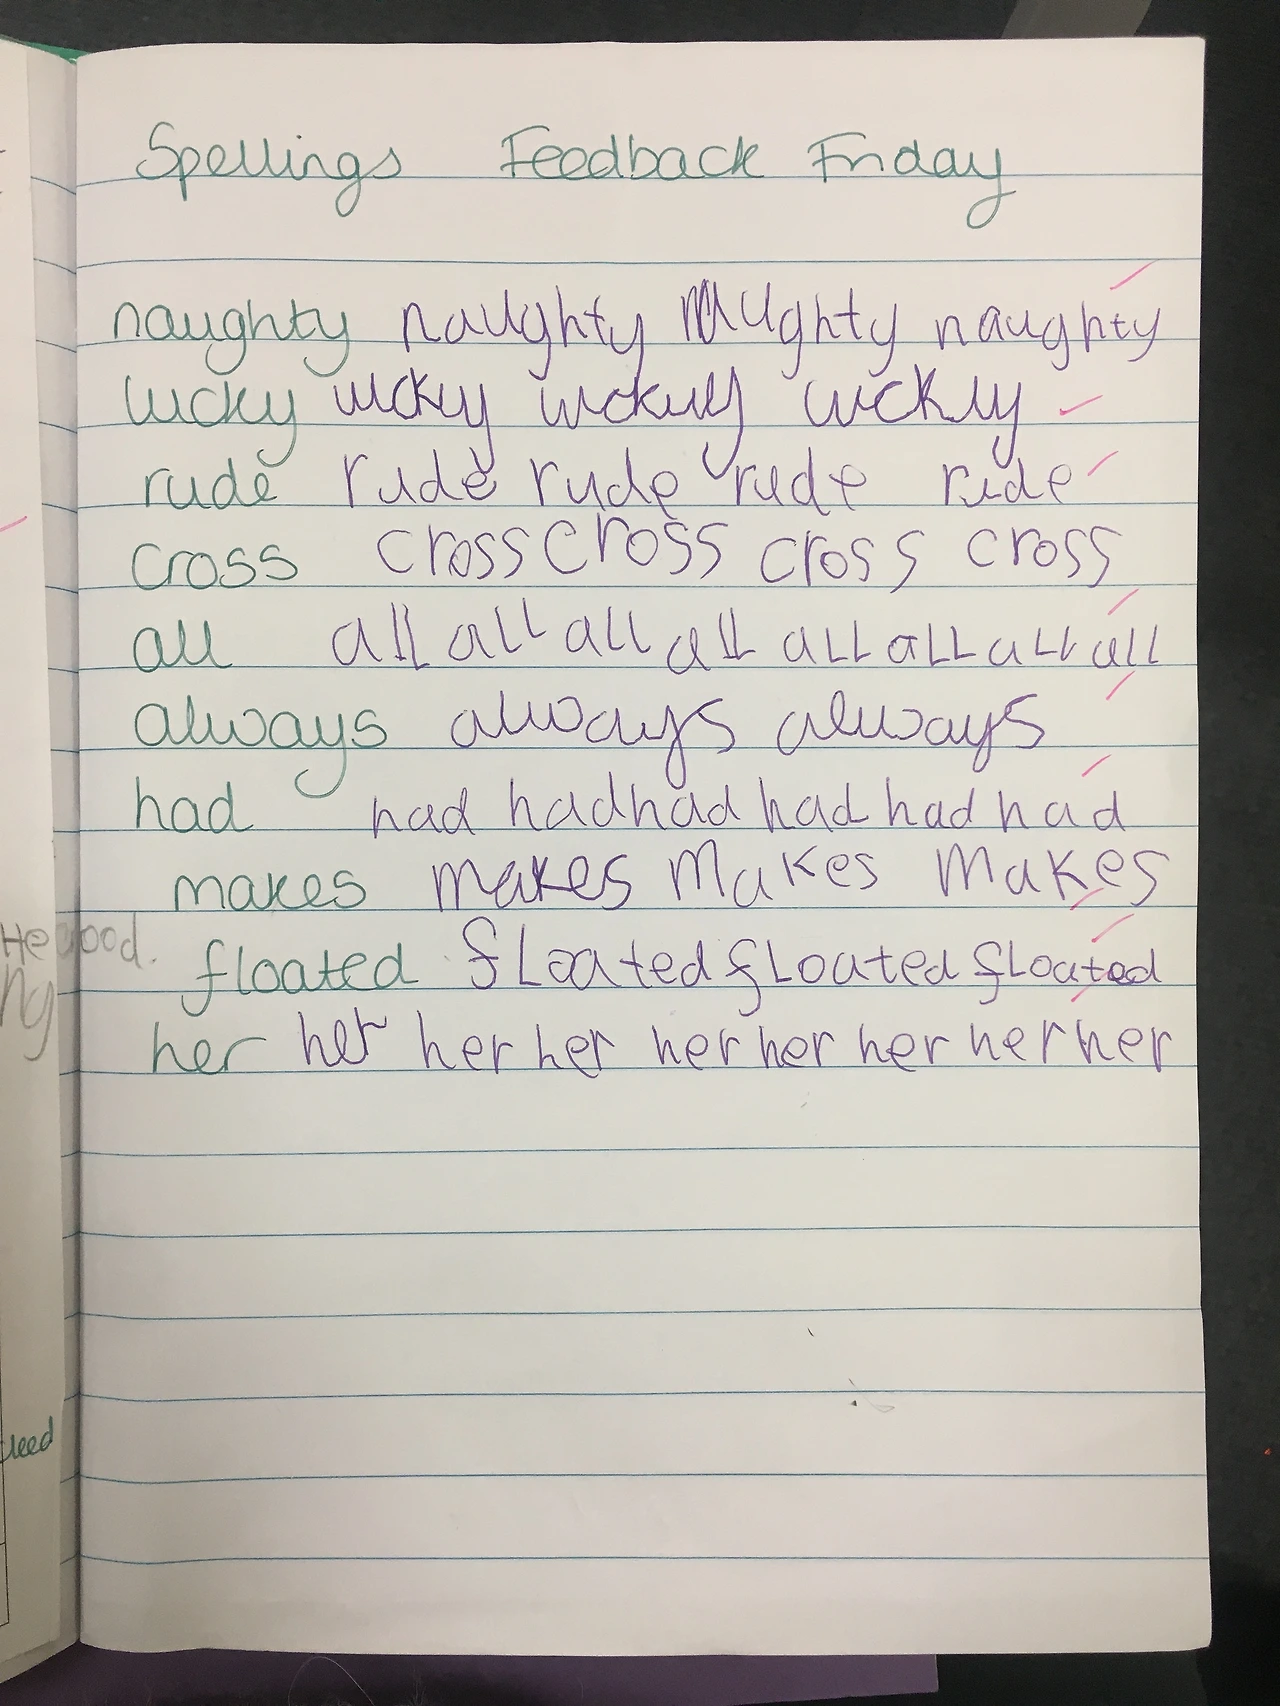 Spellings Feedback Friday
naughty naughty naughty naughty
lucky lucky luckily luckly
rude rude rude rude rude
cross cross cross cross cross
all all all all all all all all all
always always always
had had had had had had had
makes makes makes makes
floated floated floated floated
her her her her her her her her her